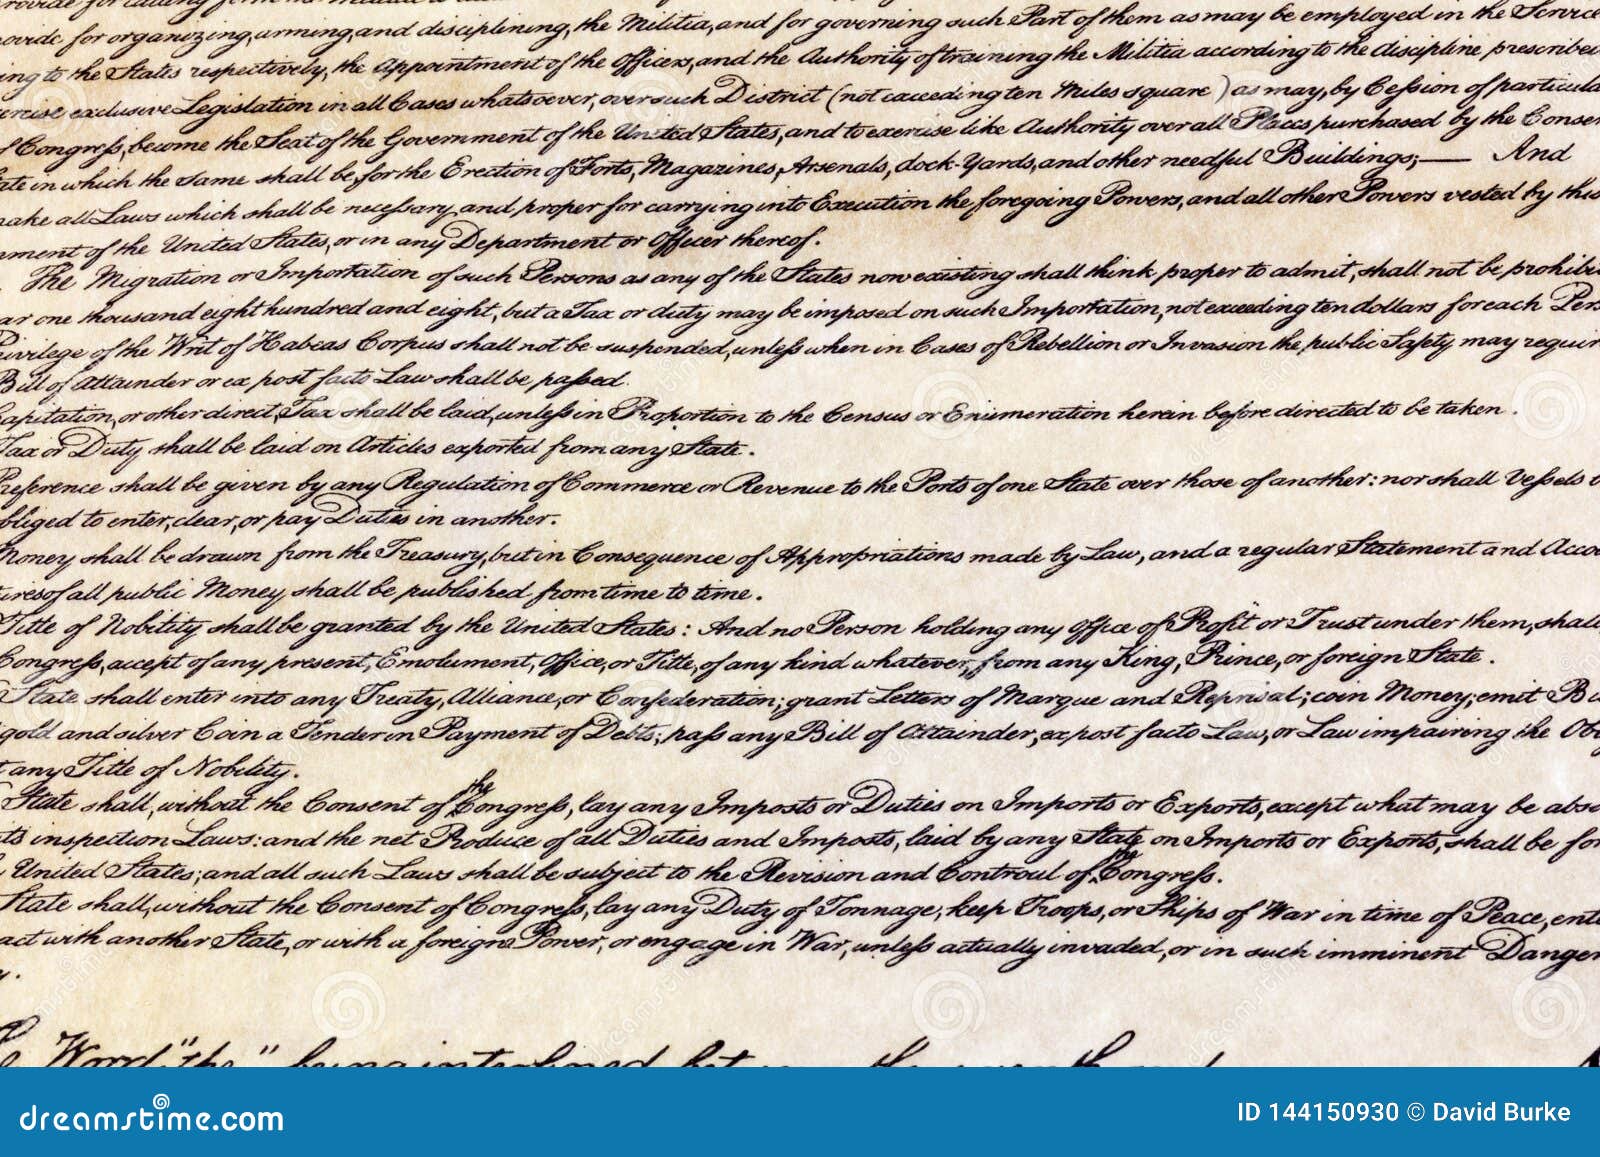 ovide for organizing, arming, and disciplining, the Militia, and for governing such Part of them as may be employed in the Service
ing to the States respectively, the Appointment of the Officers, and the Authority of training the Militia according to the discipline prescribed
ercise exclusive Legislation in all Cases whatsoever, over such District (not exceeding ten Miles square) as may, by Cession of particula
f Congress, become the Seat of the Government of the United States, and to exercise like Authority over all Places purchased by the Consen
ate in which the Same shall be, for the Erection of Forts, Magazines, Arsenals, dock-Yards, and other needful Buildings;— And
make all Laws which shall be necessary and proper for carrying into Execution the foregoing Powers, and all other Powers vested by this
nment of the United States, or in any Department or Officer thereof.
The Migration or Importation of such Persons as any of the States now existing shall think proper to admit, shall not be prohibi
ar one thousand eight hundred and eight, but a Tax or duty may be imposed on such Importation, not exceeding ten dollars for each Pers
Privilege of the Writ of Habeas Corpus shall not be suspended, unless when in Cases of Rebellion or Invasion the public Safety may requir
Bill of Attainder or ex post facto Law shall be passed.
Capitation, or other direct, Tax shall be laid, unless in Proportion to the Census or Enumeration herein before directed to be taken.
Tax or Duty shall be laid on Articles exported from any State.
Preference shall be given by any Regulation of Commerce or Revenue to the Ports of one State over those of another: nor shall Vessels
bliged to enter, clear, or pay Duties in another.
Money shall be drawn from the Treasury, but in Consequence of Appropriations made by Law; and a regular Statement and Acco
ures of all public Money shall be published from time to time.
Title of Nobility shall be granted by the United States: And no Person holding any Office of Profit or Trust under them, shall,
Congress, accept of any present, Emolument, Office, or Title, of any kind whatever, from any King, Prince, or foreign State.
State shall enter into any Treaty, Alliance, or Confederation; grant Letters of Marque and Reprisal; coin Money; emit Bi
gold and silver Coin a Tender in Payment of Debts; pass any Bill of Attainder, ex post facto Law, or Law impairing the Obl
t any Title of Nobility.
State shall, without the Consent of the Congress, lay any Imposts or Duties on Imports or Exports, except what may be abso
its inspection Laws: and the net Produce of all Duties and Imposts, laid by any State on Imports or Exports, shall be for
United States; and all such Laws shall be subject to the Revision and Controul of the Congress.
State shall, without the Consent of Congress, lay any Duty of Tonnage, keep Troops, or Ships of War in time of Peace, ente
act with another State, or with a foreign Power, or engage in War, unless actually invaded, or in such imminent Danger
y.
Word "the" being interlined
dreamstime.com ID 144150930 © David Burke